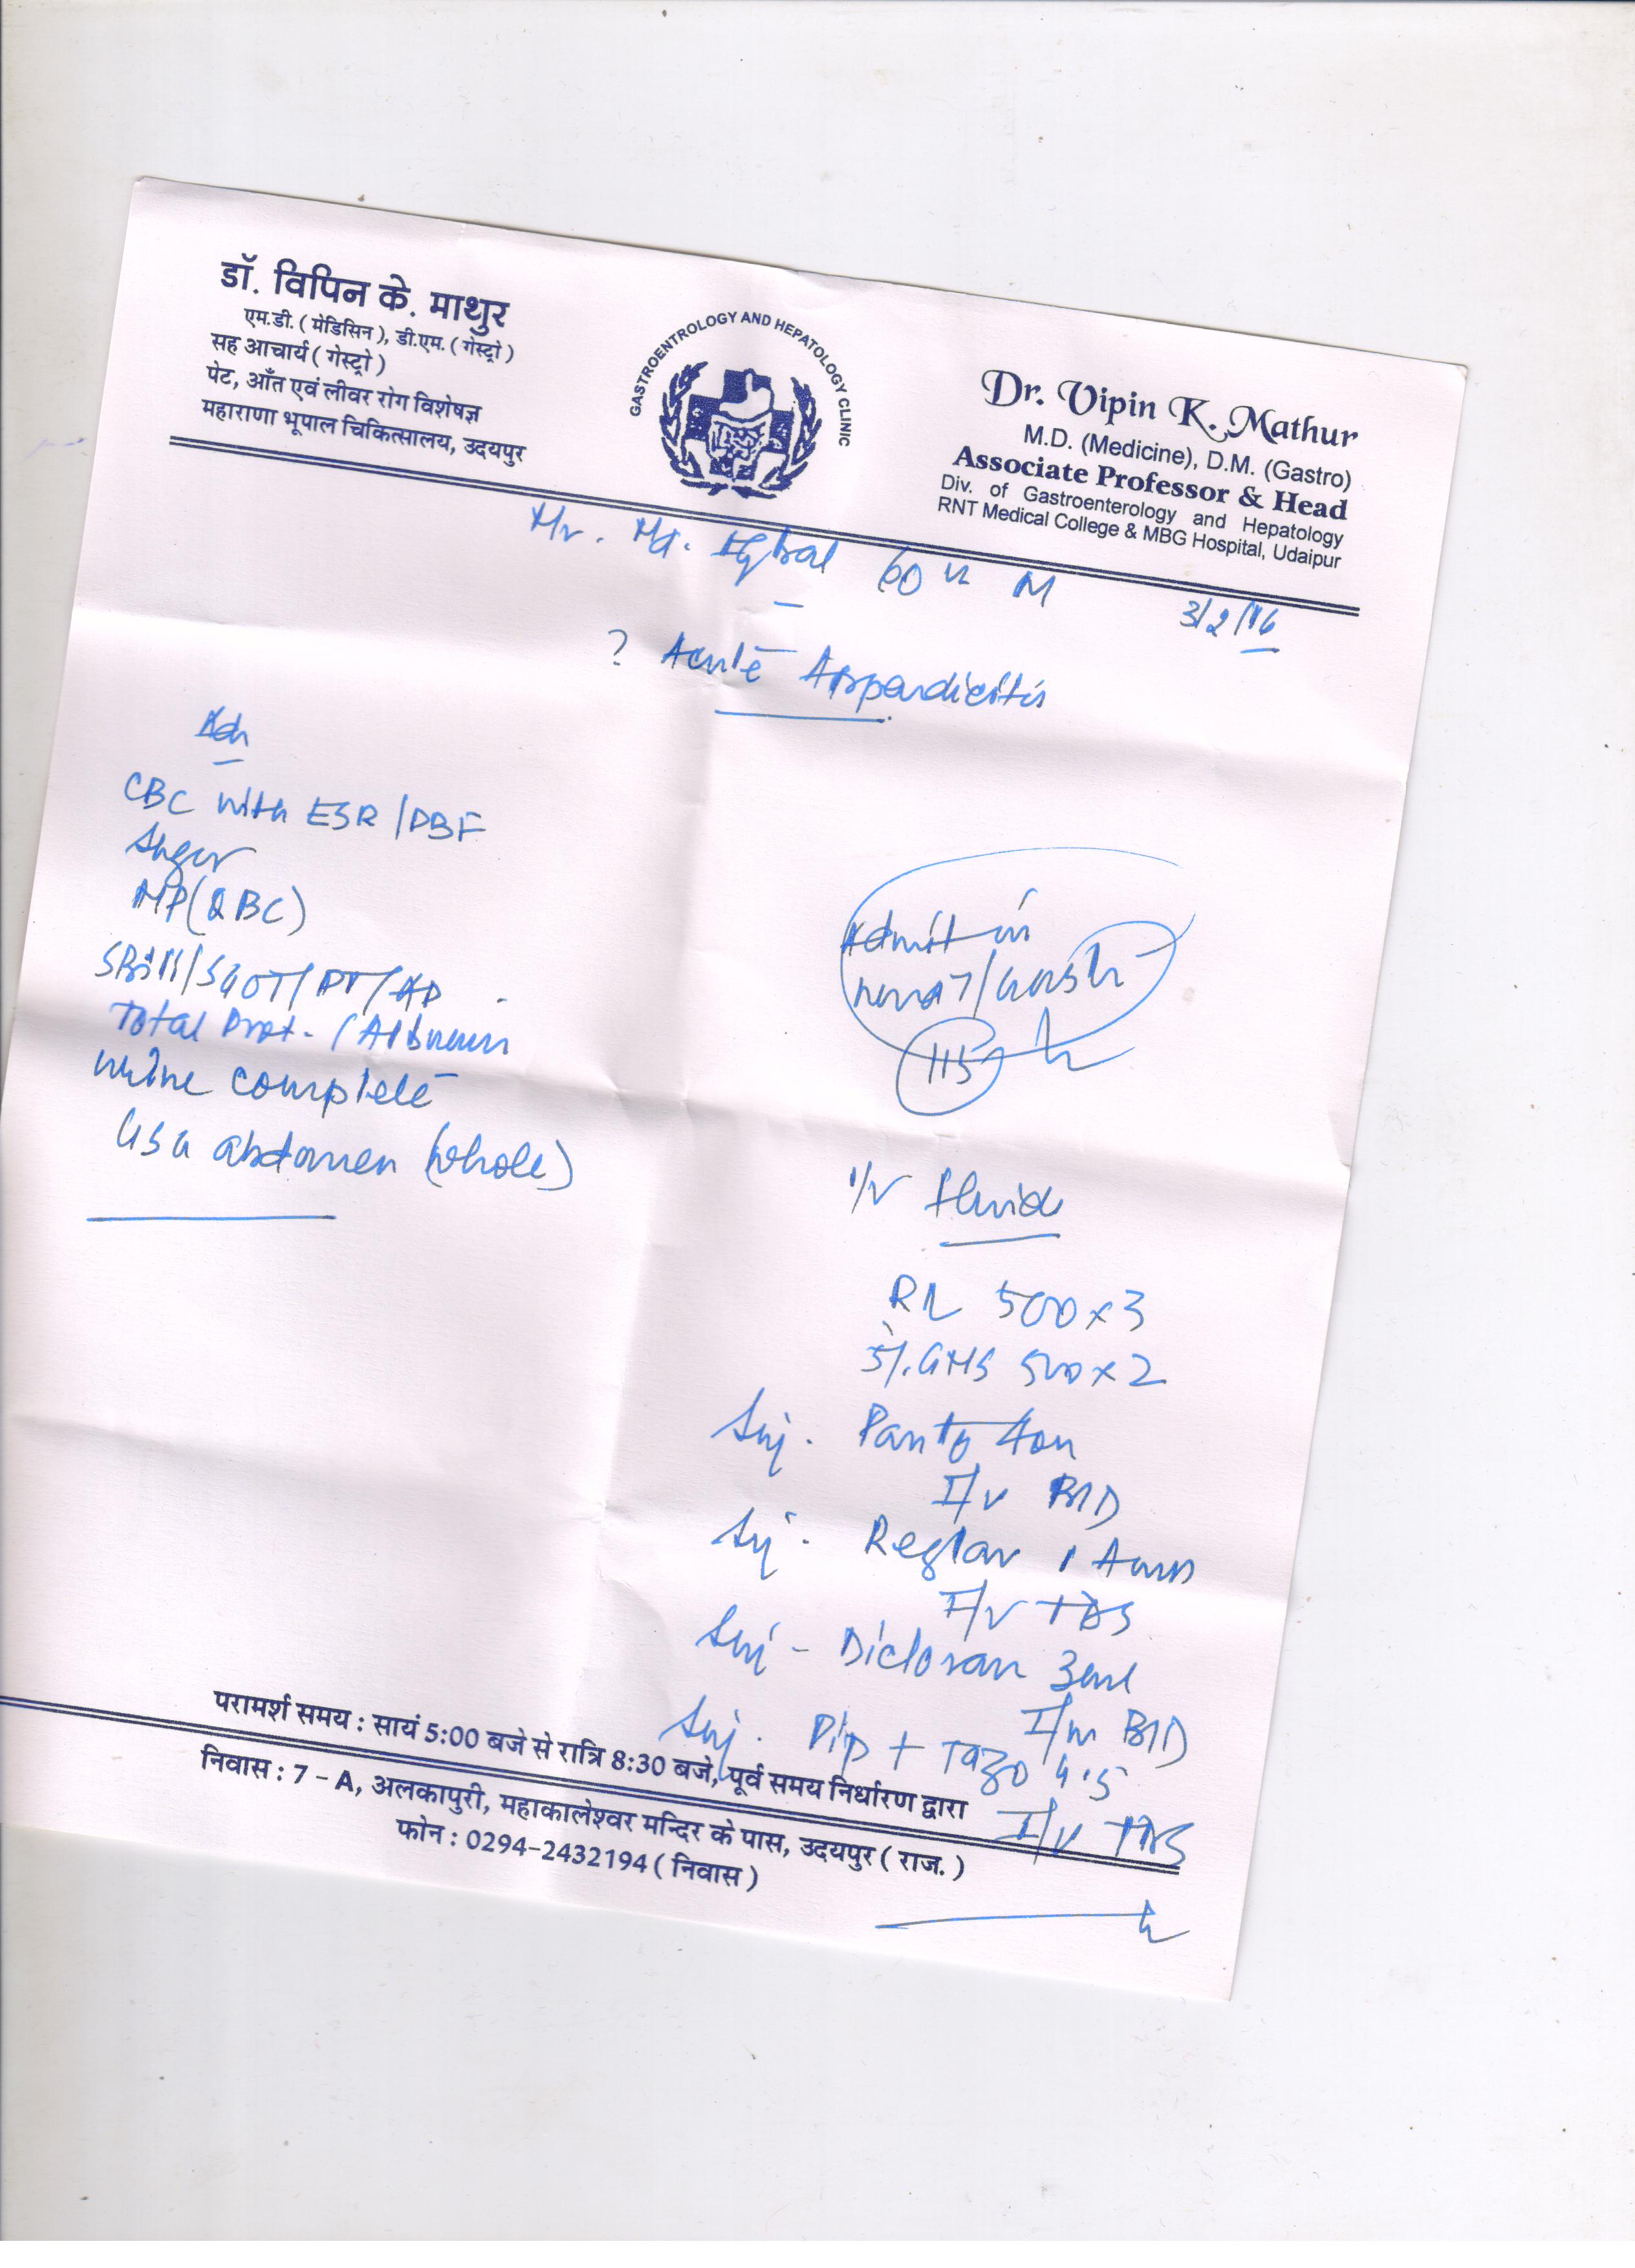 डॉ. विपिन के. माथुर
एम.डी. ( मेडिसिन ), डी.एम. ( गेस्ट्रो )
सह आचार्य ( गेस्ट्रो )
पेट, आँत एवं लीवर रोग विशेषज्ञ
महाराणा भूपाल चिकित्सालय, उदयपुर
GASTROENTROLOGY AND HEPATOLOGY CLINIC
Dr. Vipin K. Mathur
M.D. (Medicine), D.M. (Gastro)
Associate Professor & Head
Div. of Gastroenterology and Hepatology
RNT Medical College & MBG Hospital, Udaipur
Mr. Md. Iqbal 60 M
3/2/16
? Acute Appendicitis
CBC with ESR / PBF
Sugar
MP (QBC)
SBill / SGOT / PT / AP
Total Prot. / Albumin
urine complete
USG abdomen (whole)
Admit in
115
I/V fluid
RL 500 x 3
5%. GNS 500 x 2
Inj. Panto 40
I/V BID
Inj. Reglan 1 Amp
I/V TDS
Inj - Dicloran 3ml
I/m BID
Inj. Pip + Tazo 4.5
I/V TDS
परामर्श समय : सायं 5:00 बजे से रात्रि 8:30 बजे, पूर्व समय निर्धारण द्वारा
निवास : 7 - A, अलकापुरी, महाकालेश्वर मन्दिर के पास, उदयपुर ( राज. )
फोन : 0294-2432194 ( निवास )